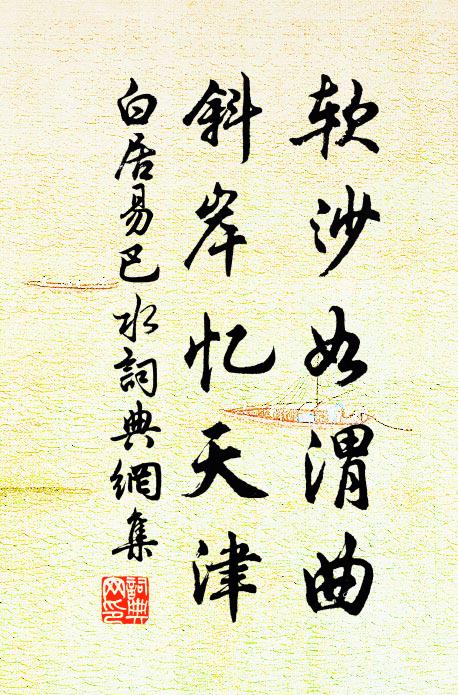 软沙如渭曲
斜岸忆天津
白居易巴水詞典網集
詞典网印